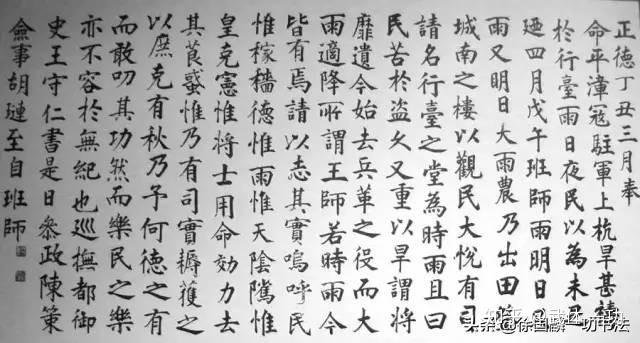 正德丁丑三月奉
命平漳寇駐軍上杭旱甚禱
於行臺雨日夜民以為未足
廼四月戊午班師雨明日
雨又明日大雨農乃出田登
城南之樓以觀民大悅有司
請名行臺之堂為時雨且曰
民苦於盜久又重以旱謂將
靡遺今始去兵革之役而大
雨適降所謂王師若時雨今
皆有焉請以志其實嗚呼民
惟稼穡德惟雨惟天陰騭惟
皇克憲惟將士用命効力去
其莨蜮惟乃有司實耨獲之
以庶克有秋乃予何德之有
而敢叨其功然而樂民之樂
亦不容於無紀也巡撫都御
史王守仁書是日叅政陳策
僉事胡璉至自班師
头条 @徐国麟一功书法